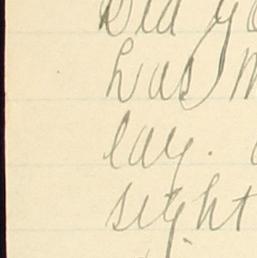 Did yo
was m
lay.
sight